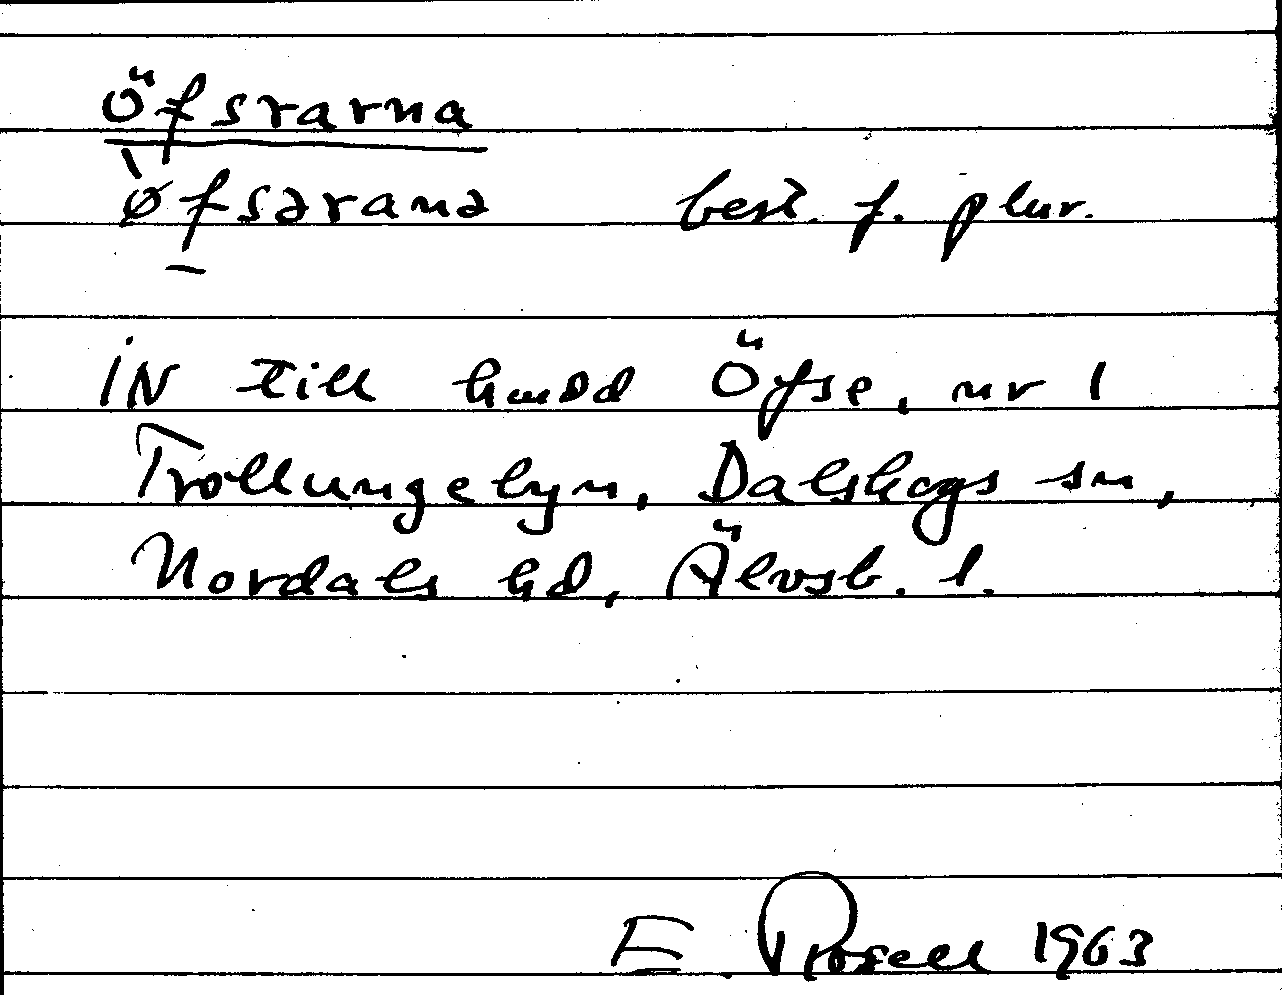 Öfsrarna
ø̀f̠sərana best. f. plur.
IN till hmdd Öfse, nr 1
Trollungebyn, Dalskogs sn,
Nordals hd, Älvsb. l.
E. Rosell 1963